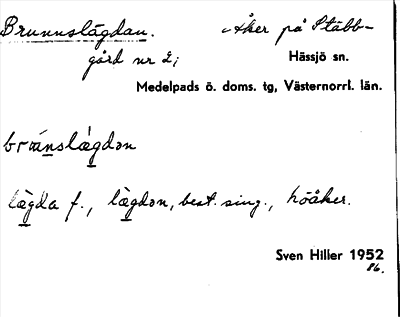 Brunnslägdan. Åker på Stäbb-
gård nr 2;  Hässjö sn.
Medelpads ö. doms. tg, Västernorrl. län.
lägda f., lägdən, best. sing., höåker.
Sven Hiller 1952
86.